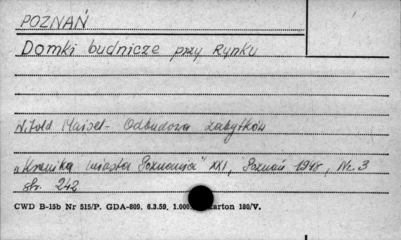 POZNAŃ
Domki budnicze przy Rynku
Witold Maisel - Odbudowa zabytków
"Kronika Miasta Poznania" XXI, Poznań 1948, Nr. 3
str. 242
CWD B-15b Nr 515/P. GDA-809. 6.3.59. 1.000 karton 180/V.